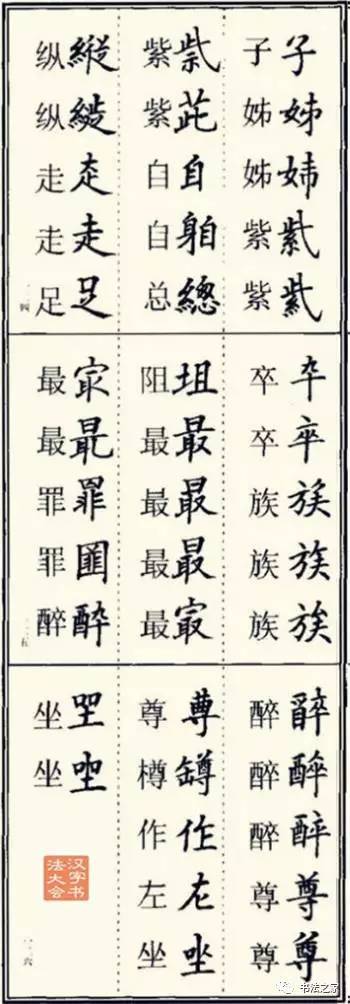 子姊姉紫紫
子姊姊紫紫
紫自總
紫紫自自总
縱縱走足
纵纵走走足
卆卒族族族
卒卒族族族
最最最
阻最最最最
最罪醉
最最罪罪醉
醉醉尊尊
醉醉醉尊尊
尊罇作左坐
尊樽作左坐
坐
坐坐
汉字书
法大会
书法之家